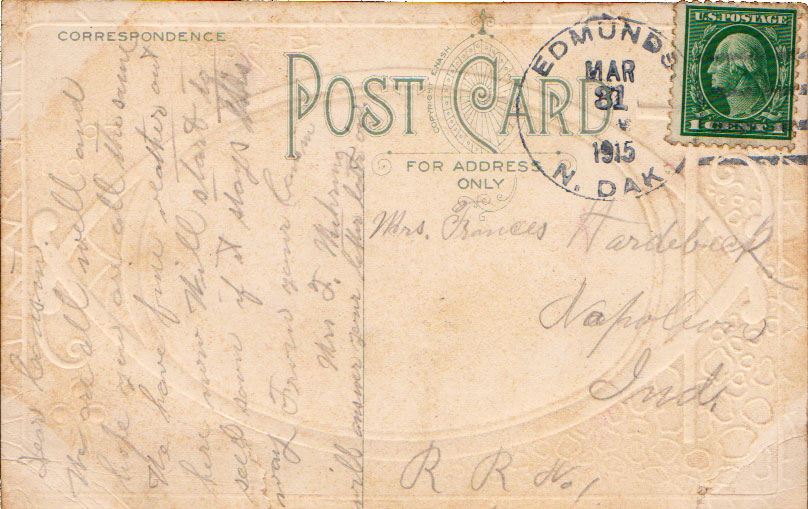 CORRESPONDENCE
POST CARD
COPYRIGHT E NASH
FOR ADDRESS
ONLY
EDMUNDS
MAR
31
1915
N. DAK
U.S. POSTAGE
1 CENT 1
Mrs. Frances
Tardebeck,
Napoleon
Ind.
R R No. 1
Dear Cousin.
We are all well and
hope you are all the same
We have fine weather out
here now Will start to
seed some if it stays this
way From your Cousin
Mrs F.
will answer your letter later